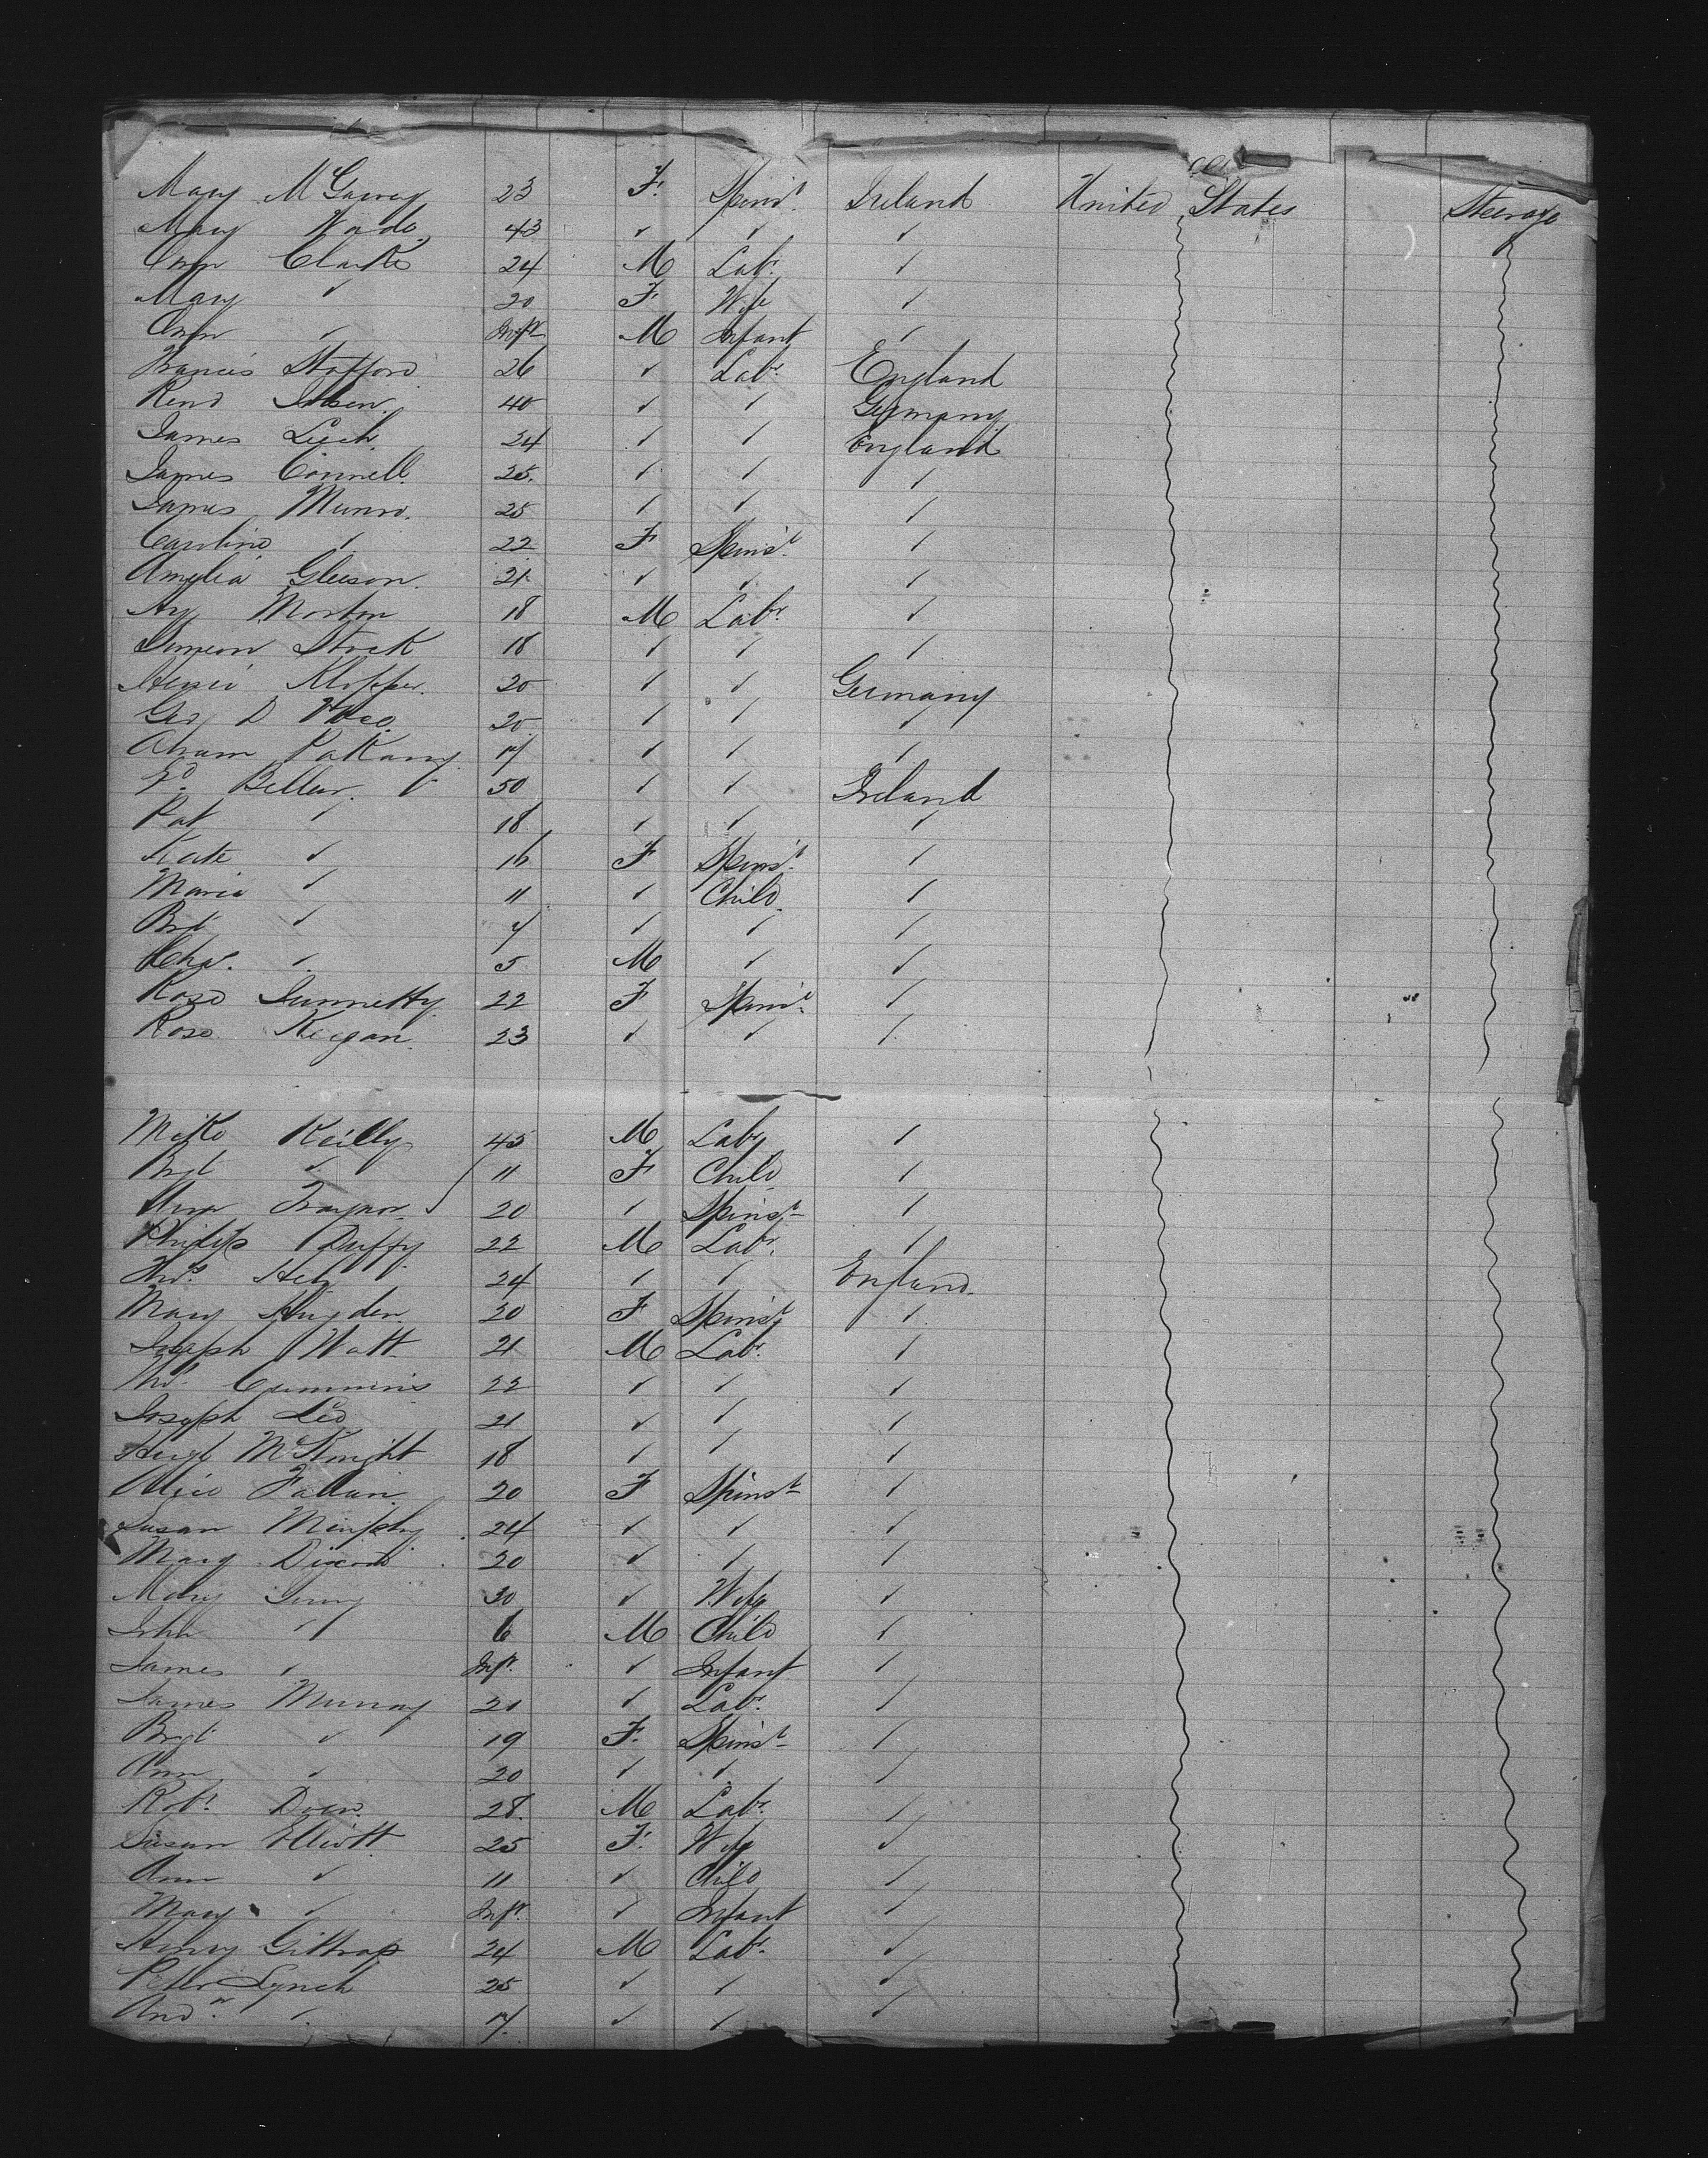 Mary McGarvey 23 F. Spinst. Ireland United States Steerage
Mary Wade 43 ✓ ✓ ✓
Owen Clarke 24 M Labr. ✓
Mary ✓ 20 F. Wife ✓
Owen ✓ Inft M Infant ✓
Francis Stafford 26 ✓ Labr. England
40 ✓ ✓ Germany
James Leech 24 ✓ ✓ England
James Connell 25 ✓ ✓ ✓
James Munro. 25 ✓ ✓ ✓
Caroline ✓ 22 F Spinst. ✓
Amelia Gleeson. 21 ✓ ✓ ✓
Hy Morton 18 M Labr. ✓
Simeon Stock 18 ✓ ✓ ✓
Klopper. 20 ✓ ✓ Germany
Geo D 20 ✓ ✓ ✓
17 ✓ ✓ ✓
Beller. 50 ✓ ✓ Ireland
Pat ✓ 18 ✓ ✓ ✓
Kate ✓ 16 F Spinst. ✓
Maria ✓ 11 ✓ Child ✓
Bgt ✓ 7 ✓ ✓ ✓
Chas. ✓ 5 M ✓ ✓
Rose 22 F Spinst. ✓
Rose Keegan 23 ✓ ✓ ✓
Mike Reilly 45 M Labr ✓
Bgt ✓ 11 F Child ✓
Traynor 20 ✓ Spinst ✓
Philip Duffy 22 M Labr. ✓
Thos. 24 ✓ ✓ England.
Mary Higden 20 F Spinst ✓
Joseph Watt 21 M Labr. ✓
Thos. Cummins 22 ✓ ✓ ✓
Joseph Leo 21 ✓ ✓ ✓
Hugh McKnight 18 ✓ ✓ ✓
Alice Fallan 20 F Spinst ✓
Susan Murphy 24 ✓ ✓ ✓
Mary Dixon 20 ✓ ✓ ✓
Mary 30 ✓ Wife ✓
John ✓ 6 M Child ✓
James ✓ Inft. ✓ Infant ✓
James Murray 20 ✓ Labr. ✓
Brgt ✓ 19 F. Spinst ✓
Ann ✓ 20 ✓ ✓ ✓
Robt. 28. M Labr. ✓
Susan Elliott 25 F. Wife ✓
Ann ✓ 11 ✓ Child ✓
Mary ✓ Inft. ✓ Infant ✓
Henry Giltrap 24 M Labr. ✓
Peter Lynch 25 ✓ ✓ ✓
Andw. ✓ 17. ✓ ✓ ✓